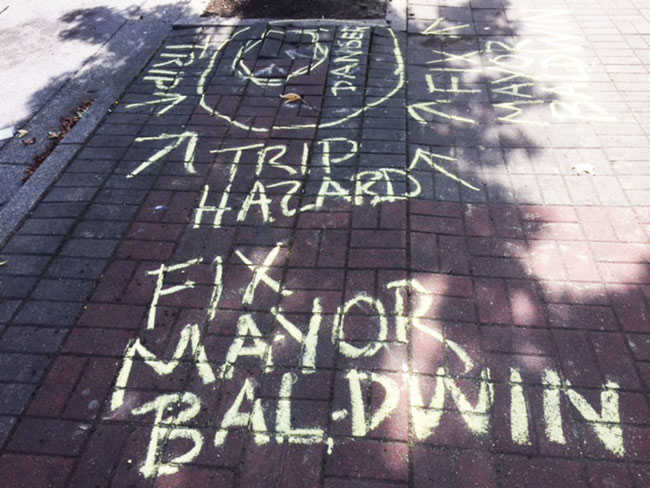 TRIP
DANGER
FIX
MAYOR
BALDWIN
TRIP
HAZARD
FIX
MAYOR
BALDWIN